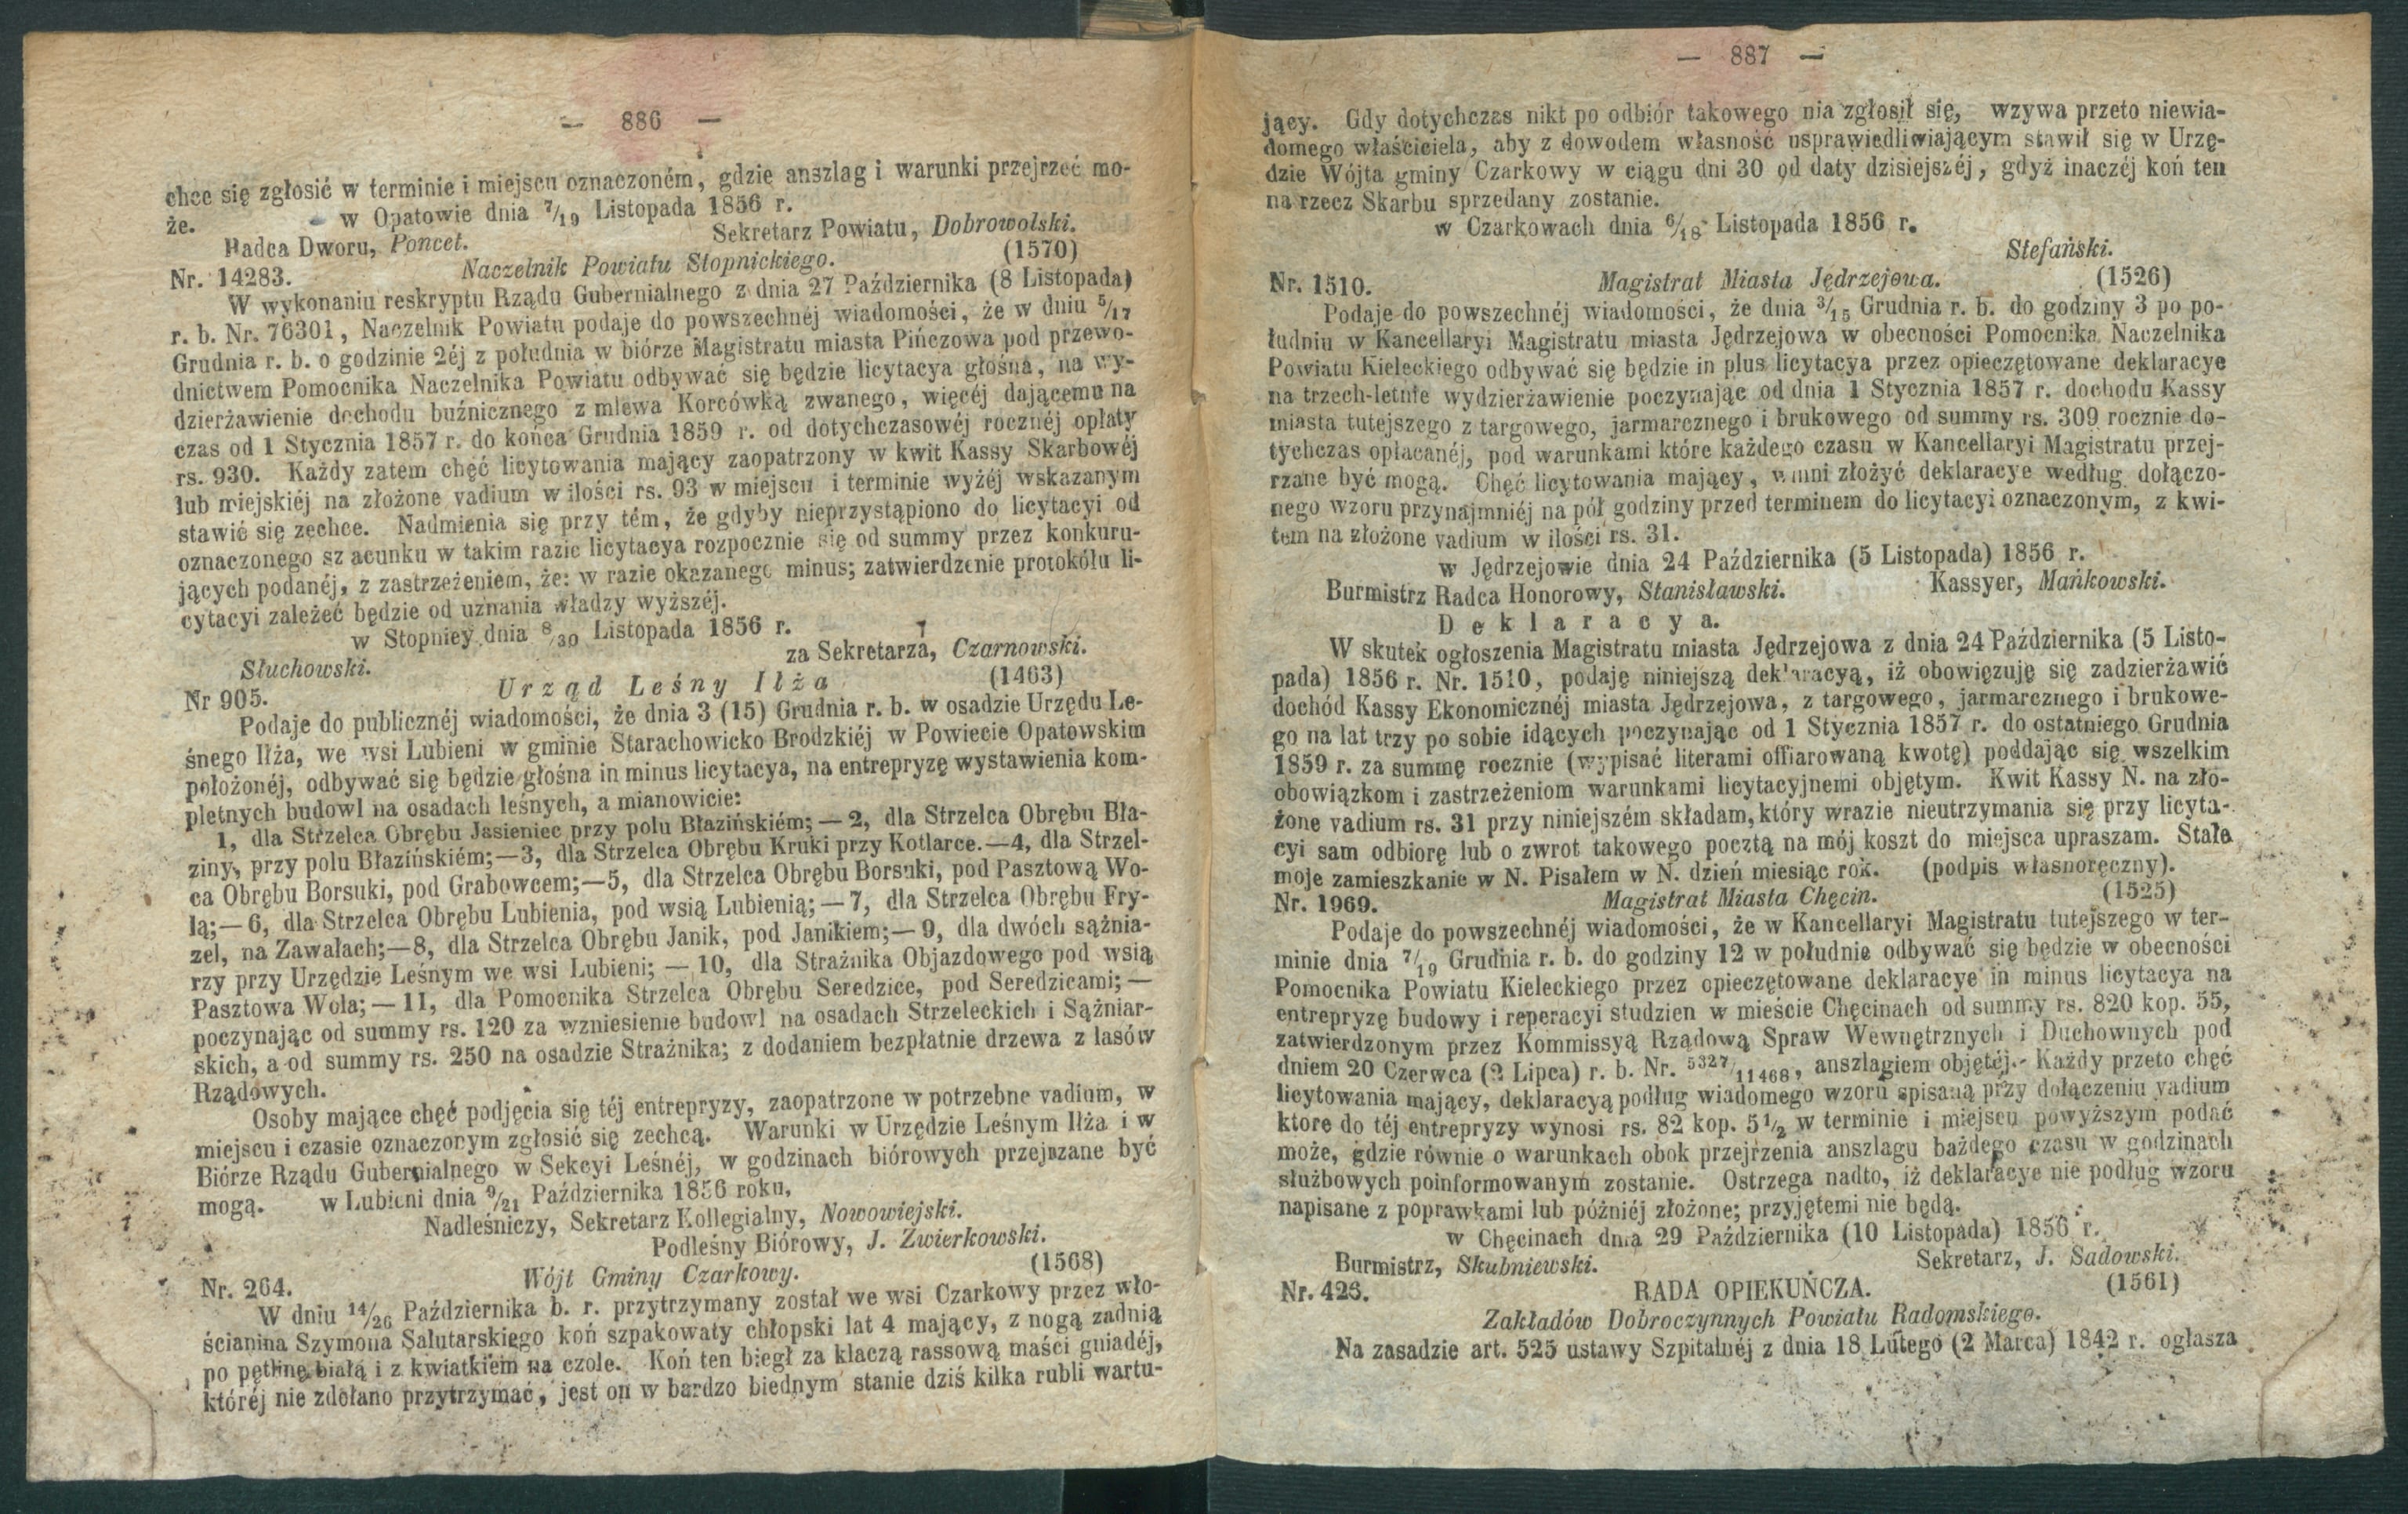 — 886 —
chce się zgłosić w terminie i miejscu oznaczoném, gdzie anszlag i warunki przejrzeć mo-
że. w Opatowie dnia 7/19 Listopada 1856 r.
Radca Dworu, Poncet. Sekretarz Powiatu, Dobrowolski.
Nr. 14283. Naczelnik Powiatu Stopnickiego. (1570)
W wykonaniu reskryptu Rządu Gubernialnego z dnia 27 Października (8 Listopada)
r. b. Nr. 76301, Naczelnik Powiatu podaje do powszechnéj wiadomości, że w dniu 5/17
Grudnia r. b. o godzinie 2éj z południa w biórze Magistratu miasta Pińczowa pod przewo-
dnictwem Pomocnika Naczelnika Powiatu odbywać się będzie licytacya głośna, na wy-
dzierżawienie dochodu buźnicznego z mlewa Korcówką zwanego, więcéj dającemu na
czas od 1 Stycznia 1857 r. do końca Grudnia 1859 r. od dotychczasowéj rocznéj opłaty
rs. 930. Każdy zatem chęć licytowania mający zaopatrzony w kwit Kassy Skarbowéj
lub miejskiéj na złożone vadium w ilości rs. 93 w miejscu i terminie wyżéj wskazanym
stawić się zechce. Nadmienia się przy tém, że gdyby nieprzystąpiono do licytacyi od
oznaczonego sz acunku w takim razie licytacya rozpocznie się od summy przez konkuru-
jących podanéj, z zastrzeżeniem, że: w razie okazanego minus; zatwierdzenie protokółu li-
cytacyi zależeć będzie od uznania władzy wyższéj.
w Stopnicy dnia 8/30 Listopada 1856 r.
Słuchowski. za Sekretarza, Czarnowski.
Nr 905. Urząd Leśny Iłża (1463)
Podaje do publicznéj wiadomości, że dnia 3 (15) Grudnia r. b. w osadzie Urzędu Le-
śnego Iłża, we wsi Lubieni w gminie Starachowicko Brodzkiéj w Powiecie Opatowskim
położonéj, odbywać się będzie głośna in minus licytacya, na entrepryzę wystawienia kom-
pletnych budowl na osadach leśnych, a mianowicie:
1, dla Strzelca Obrębu Jasieniec przy polu Błazińskiém; — 2, dla Strzelca Obrębu Bła-
ziny, przy polu Błazińskiém;—3, dla Strzelca Obrębu Kruki przy Kotlarce.—4, dla Strzel-
ca Obrębu Borsuki, pod Grabowcem;—5, dla Strzelca Obrębu Borsuki, pod Pasztową Wo-
lą;—6, dla Strzelca Obrębu Lubienia, pod wsią Lubienią; — 7, dla Strzelca Obrębu Fry-
zel, na Zawałach;—8, dla Strzelca Obrębu Janik, pod Janikiem;— 9, dla dwóch sążnia-
rzy przy Urzędzie Leśnym we wsi Lubieni; — 10, dla Strażnika Objazdowego pod wsią
Pasztowa Wola; — 11, dla Pomocnika Strzelca Obrębu Seredzice, pod Seredzicami; —
poczynając od summy rs. 120 za wzniesienie budowl na osadach Strzeleckich i Sążniar-
skich, a od summy rs. 250 na osadzie Strażnika; z dodaniem bezpłatnie drzewa z lasów
Rządowych.
Osoby mające chęć podjęcia się téj entrepryzy, zaopatrzone w potrzebne vadium, w
miejscu i czasie oznaczonym zgłosić się zechcą. Warunki w Urzędzie Leśnym Iłża i w
Biórze Rządu Gubernialnego w Sekcyi Leśnéj, w godzinach biórowych przejrzane być
mogą. w Lubieni dnia 9/21 Października 1856 roku,
Nadleśniczy, Sekretarz Kollegialny, Nowowiejski.
Podleśny Biórowy, J. Zwierkowski.
Nr. 264. Wójt Gminy Czarkowy. (1568)
W dniu 14/26 Października b. r. przytrzymany został we wsi Czarkowy przez wło-
ścianina Szymona Salutarskiego koń szpakowaty chłopski lat 4 mający, z nogą zadnią
po pętlinę białą i z kwiatkiem na czole. Koń ten biegł za klaczą rassową maści gniadéj,
któréj nie zdołano przytrzymać, jest on w bardzo biednym stanie dziś kilka rubli wartu-
— 887 —
jący. Gdy dotychczas nikt po odbiór takowego nia zgłosił się, wzywa przeto niewia-
domego właściciela, aby z dowodem własność usprawiedliwiającym stawił się w Urzę-
dzie Wójta gminy Czarkowy w ciągu dni 30 od daty dzisiejszéj, gdyż inaczéj koń ten
na rzecz Skarbu sprzedany zostanie.
w Czarkowach dnia 6/18 Listopada 1856 r.
Stefański.
Nr. 1510. Magistrat Miasta Jędrzejowa. (1526)
Podaje do powszechnéj wiadomości, że dnia 3/15 Grudnia r. b. do godziny 3 po po-
łudniu w Kancellaryi Magistratu miasta Jędrzejowa w obecności Pomocnika Naczelnika
Powiatu Kieleckiego odbywać się będzie in plus licytacya przez opieczętowane deklaracye
na trzech-letnie wydzierżawienie poczynając od dnia 1 Stycznia 1857 r. dochodu Kassy
miasta tutejszego z targowego, jarmarcznego i brukowego od summy rs. 309 rocznie do-
tychczas opłacanéj, pod warunkami które każdego czasu w Kancellaryi Magistratu przej-
rzane być mogą. Chęć licytowania mający, winni złożyć deklaracye według dołączo-
nego wzoru przynajmniéj na pół godziny przed terminem do licytacyi oznaczonym, z kwi-
tem na złożone vadium w ilości rs. 31.
w Jędrzejowie dnia 24 Października (5 Listopada) 1856 r.
Burmistrz Radca Honorowy, Stanisławski. Kassyer, Mańkowski.
Deklaracya.
W skutek ogłoszenia Magistratu miasta Jędrzejowa z dnia 24 Października (5 Listo-
pada) 1856 r. Nr. 1510, podaję niniejszą deklaracyą, iż obowięzuję się zadzierżawić
dochód Kassy Ekonomicznéj miasta Jędrzejowa, z targowego, jarmarcznego i brukowe-
go na lat trzy po sobie idących poczynając od 1 Stycznia 1857 r. do ostatniego Grudnia
1859 r. za summę rocznie (wypisać literami offiarowaną kwotę) poddając się wszelkim
obowiązkom i zastrzeżeniom warunkami licytacyjnemi objętym. Kwit Kassy N. na zło-
żone vadium rs. 31 przy niniejszém składam, który wrazie nieutrzymania się przy licyta-
cyi sam odbiorę lub o zwrot takowego pocztą na mój koszt do miejsca upraszam. Stałe
moje zamieszkanie w N. Pisałem w N. dzień miesiąc rok. (podpis własnoręczny).
Nr. 1969. Magistrat Miasta Chęcin. (1525)
Podaje do powszechnéj wiadomości, że w Kancellaryi Magistratu tutejszego w ter-
minie dnia 7/19 Grudnia r. b. do godziny 12 w południe odbywać się będzie w obecności
Pomocnika Powiatu Kieleckiego przez opieczętowane deklaracye in minus licytacya na
entrepryzę budowy i reperacyi studzien w mieście Chęcinach od summy rs. 820 kop. 55,
zatwierdzonym przez Kommissyą Rządową Spraw Wewnętrznych i Duchownych pod
dniem 20 Czerwca (2 Lipca) r. b. Nr. 5327/11468, anszlagiem objętéj. Każdy przeto chęć
licytowania mający, deklaracyą podług wiadomego wzoru spisaną przy dołączeniu vadium
ktore do téj entrepryzy wynosi rs. 82 kop. 5½ w terminie i miejscu powyższym podać
może, gdzie równie o warunkach obok przejrzenia anszlagu bażdego czasu w godzinach
służbowych poinformowanym zostanie. Ostrzega nadto, iż deklaracye nie podług wzoru
napisane z poprawkami lub późniéj złożone; przyjętemi nie będą.
w Chęcinach dnia 29 Października (10 Listopada) 1856 r.
Burmistrz, Skubniewski. Sekretarz, J. Sadowski.
Nr. 426. RADA OPIEKUŃCZA. (1561)
Zakładów Dobroczynnych Powiatu Radomskiego.
Na zasadzie art. 525 ustawy Szpitalnéj z dnia 18 Lutego (2 Marca) 1842 r. ogłasza